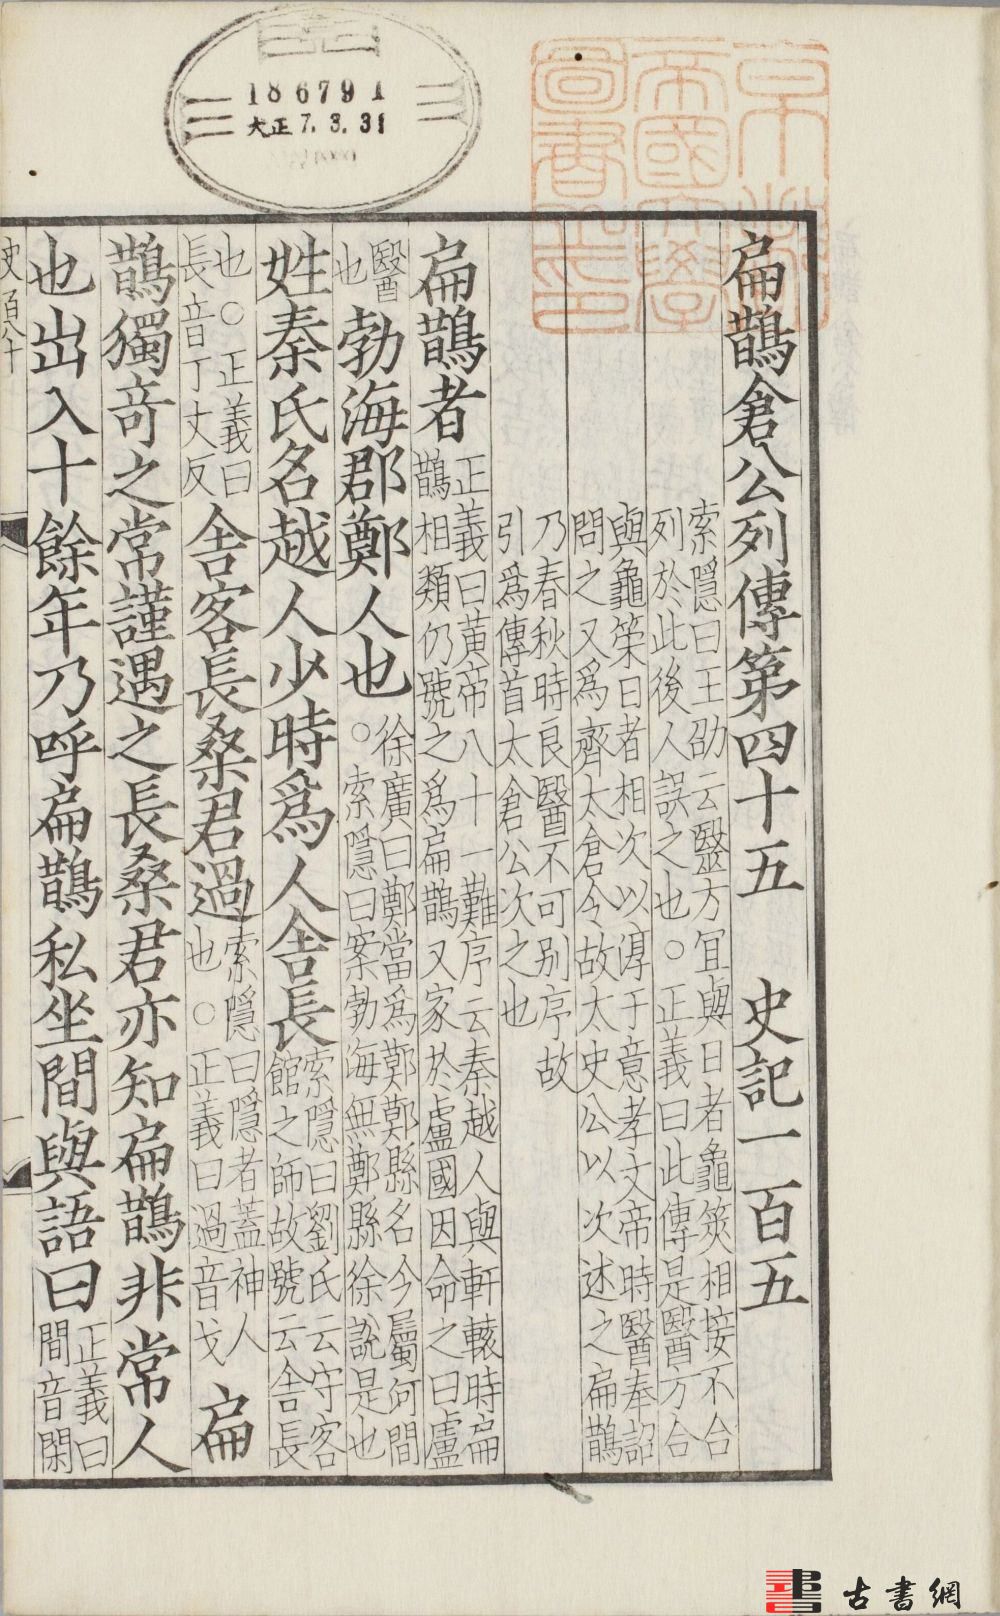 186791
大正7.3.31
京都帝國大學圖書之印
扁鵲倉公列傳第四十五 史記一百五
索隱曰王劭云醫方冝與日者龜筴相接不合
列於此後人誤之也○正義曰此傳是醫方合
與龜筞日者相次以淳于意孝文帝時醫奉詔
問之又爲齊太倉令故太史公以次述之扁鵲
乃春秋時良醫不可别序故
引爲傳首太倉公次之也
扁鵲者
正義曰黄帝八十一難序云秦越人與軒轅時扁
鵲相類仍號之爲扁鵲又家於盧國因命之曰盧
醫
也
勃海郡鄭人也
徐廣曰鄭當爲鄚鄚縣名今屬河間
○索隱曰案勃海無鄭縣徐說是也
姓秦氏名越人少時爲人舍長
索隱曰劉氏云守客
館之師故號云舍長
也○正義曰
長音丁丈反
舍客長桑君過
索隱曰隱者蓋神人
也○正義曰過音戈
扁
鵲獨竒之常謹遇之長桑君亦知扁鵲非常人
也出入十餘年乃呼扁鵲私坐間與語曰
正義曰
間音閑
史百八十
古書網